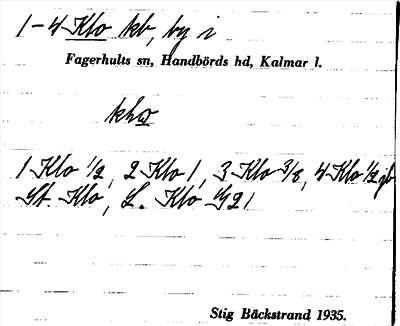 1-4 Klo kb, by i
Fagerhults sn, Handbörds hd, Kalmar l.
1 Klo 1/2, 2 Klo 1, 3 Klo 3/8, 4 Klo 1/2 gb
St. Klo, L. Klo
Stig Bäckstrand 1935.